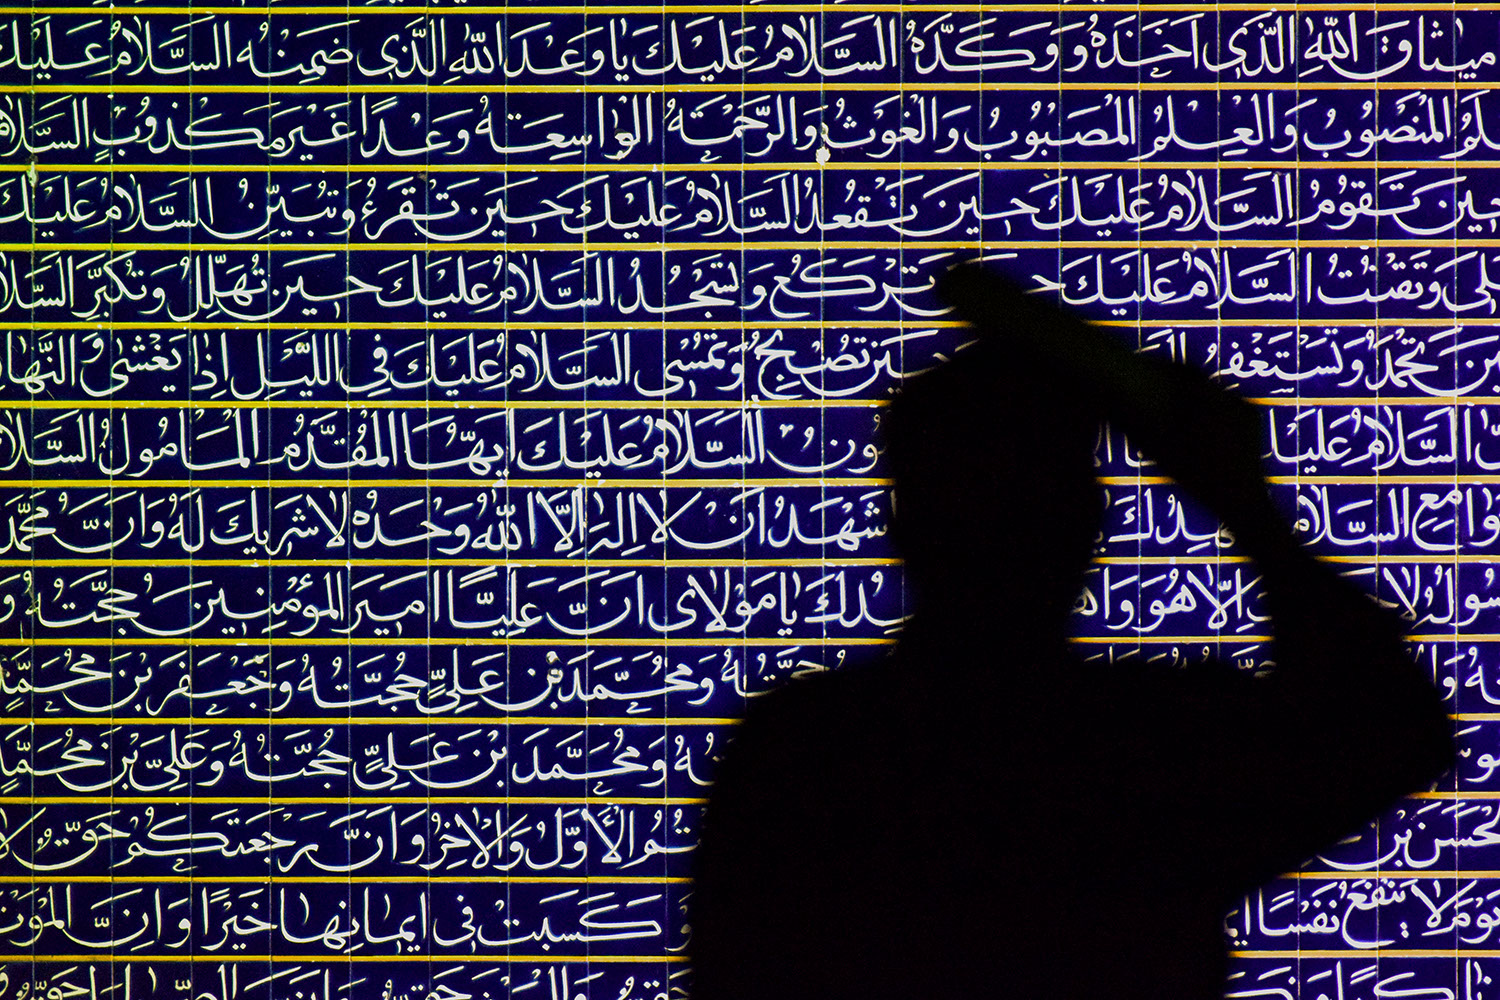 ميثاق الله الذي اخذه ووكده السلام عليك يا وعد الله الذي ضمنه السلام عليك
المنصوب والعلم المصبوب والغوث والرحمة الواسعة وعدا غير مكذوب
حين تقوم السلام عليك حين تقعد السلام عليك حين تقرء وتبين السلام عليك
وتقنت السلام عليك تركع وتسجد السلام عليك حين تهلل وتكبر
تحمد وتستغفر تصبح وتمسي السلام عليك في الليل اذا يغشى
السلام السلام عليك ايها المقدم المامول
السلام ان لا اله الا الله وحده لا شريك له وان
الا هو يا مولاى ان عليا امير المؤمنين حجته
ومحمد بن علي حجته وجعفر بن محمد
ومحمد بن علي حجته وعلي بن محمد
بن الاول والاخر وان رجعتكم حق
يوم لا ينفع نفسا كسبت في ايمانها خيرا وان